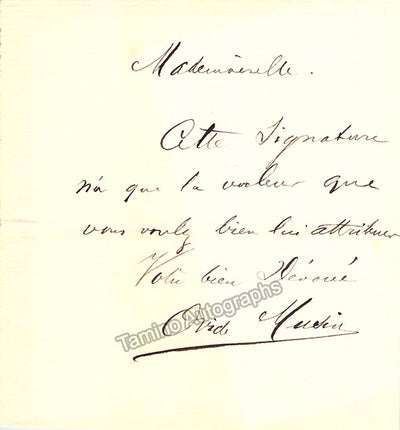 Mademoiselle.
Cette Signature
n'a que la valeur que
vous voulez bien lui attribuer
Votre bien Dévoué
Tamino Autographs
Ovide Musin